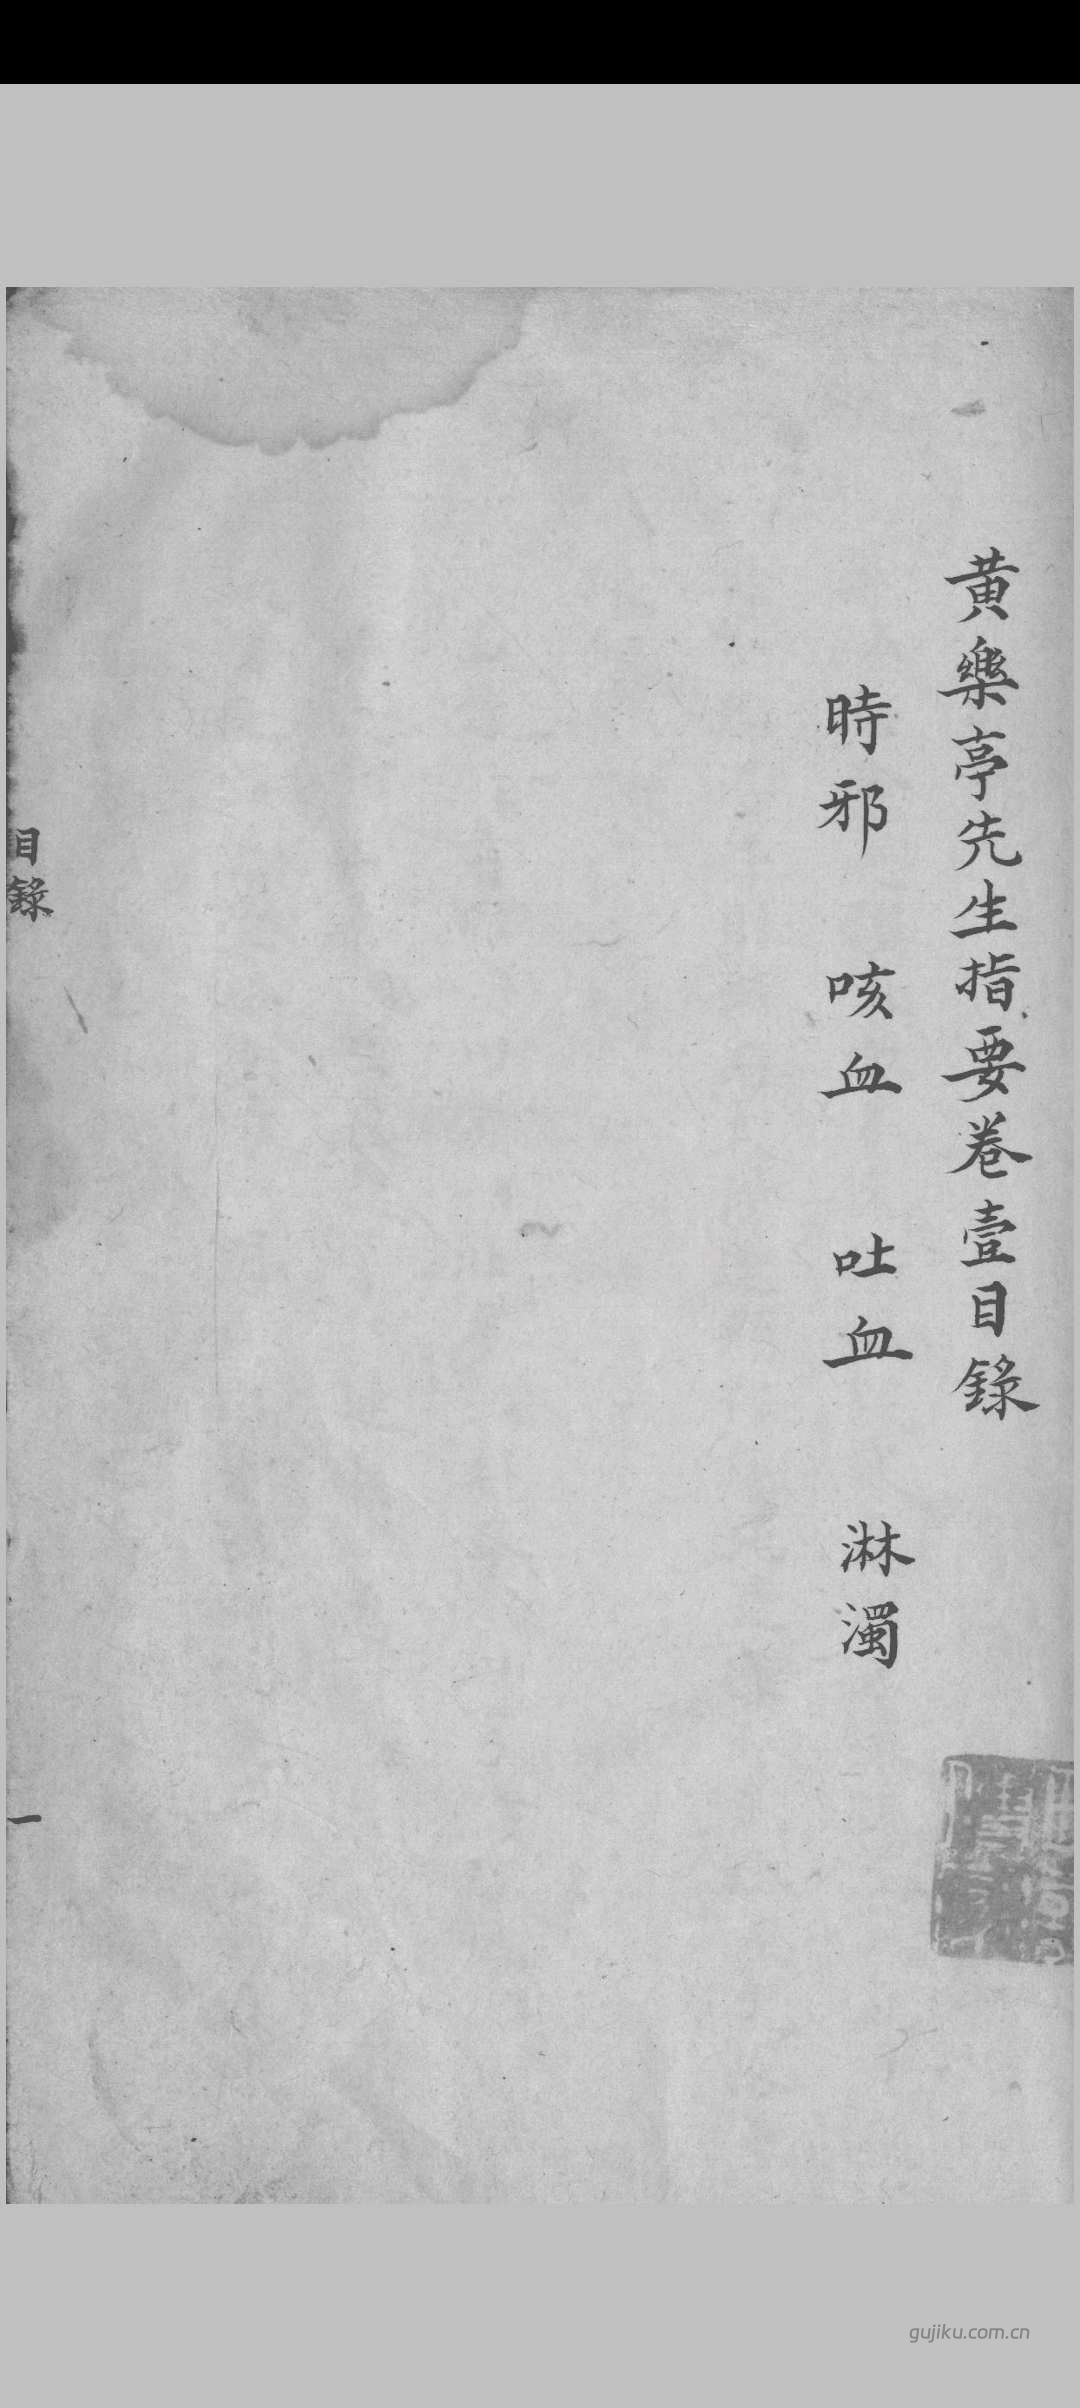 黄樂亭先生指要卷壹目錄
時邪　咳血　吐血　淋濁
目錄
一
gujiku.com.cn